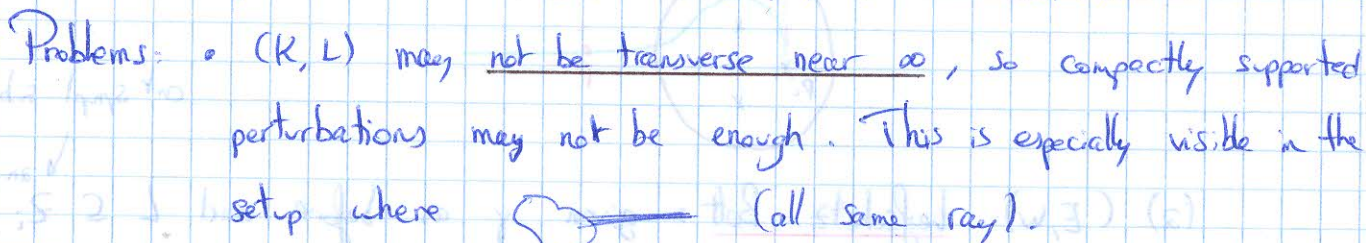 Problems: • (K, L) may not be transverse near ∞, so compactly supported
perturbations may not be enough. This is especially visible in the
setup where (all same ray).